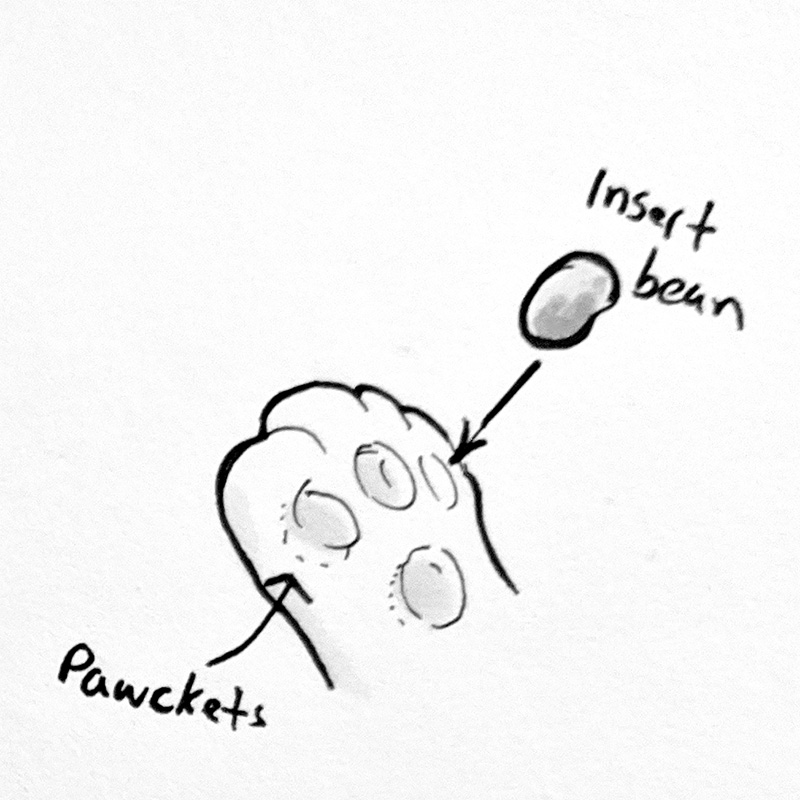 Insert
bean
Pawckets